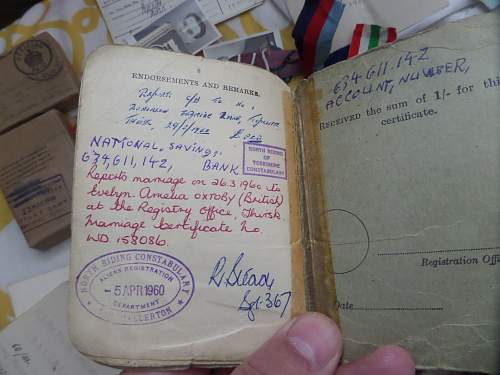 ENDORSEMENTS AND REMARKS.
Reports c/o To No,
NATIONAL, SAVINGS.
674,611,142, BANK
NORTH RIDING
OF
YORKSHIRE
CONSTABULARY
Reports marriage on 26.3.1960 to
Evelyn. Amelia OXTOBY (British)
at the Registry Office, Thirsk.
Marriage Certificate No.
WD 158086.
NORTH RIDING CONSTABULARY
ALIENS REGISTRATION
- 5 APR 1960
DEPARTMENT
NORTHALLERTON
Sgt. 367
674,611,142
ACCOUNT, NUMBER,
RECEIVED the sum of 1/- for this
certificate.
Registration Offi
Date